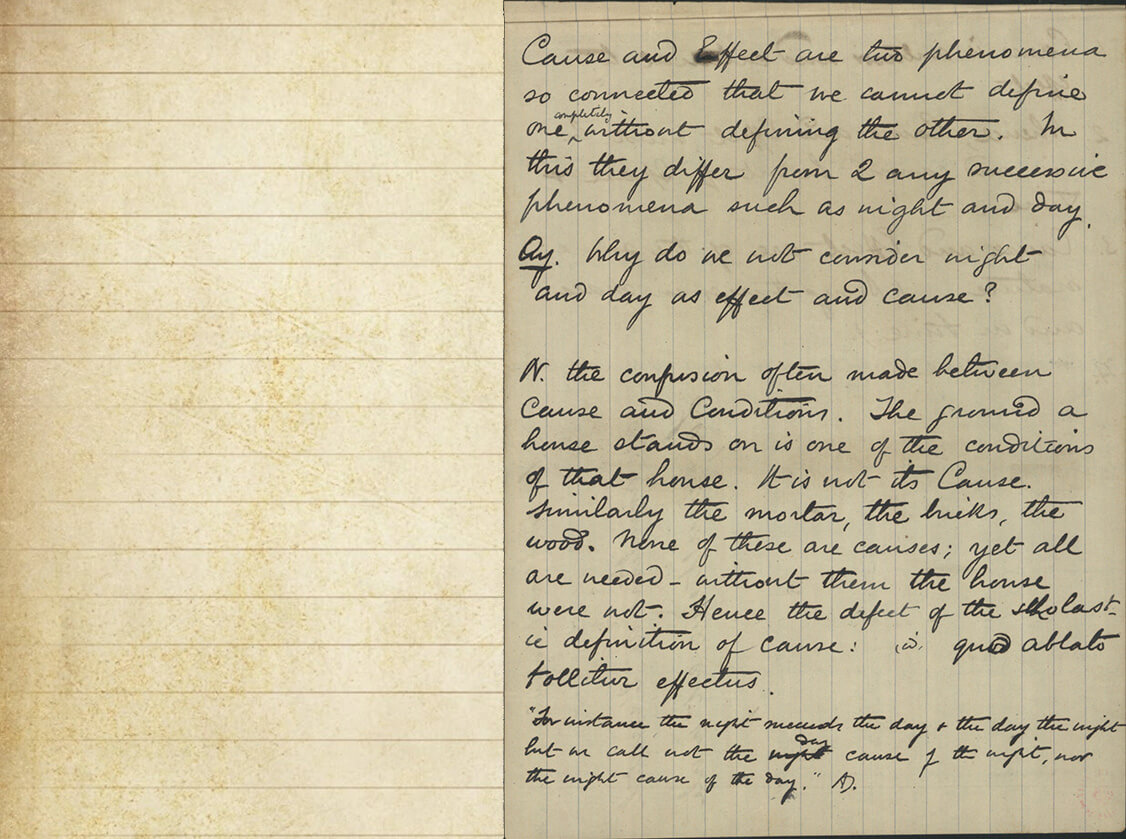 Cause and Effect are two phenomena
so connected that we cannot define
one completely without defining the other. In
this they differ from 2 any successive
phenomena such as night and day.
Qy. Why do we not consider night
and day as effect and cause?
N. the confusion often made between
Cause and Conditions. The ground a
house stands on is one of the conditions
of that house. It is not its Cause.
Similarly the mortar, the bricks, the
wood. None of these are causes; yet all
are needed - without them the house
were not. Hence the defect of the scholast-
ic definition of cause: id quod ablato
tollitur effectus.
"For instance the night succeeds the day & the day the night
but we call not the day cause of the night, nor
the night cause of the day."